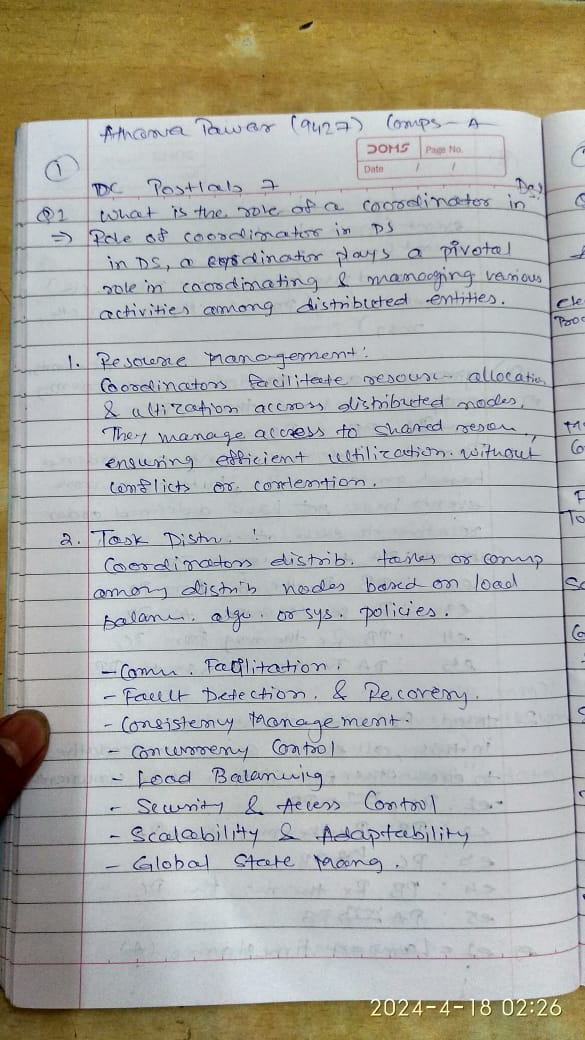 Atharva Pawar (9427) Comps-A
DOMS Page No.
Date / /
①
DC Postlab 7
Q1 What is the role of a coordinator in DS
⇒ Role of coordinator in DS
in DS, a coordinator plays a pivotal
role in coordinating & managing various
activities among distributed entities.
1. Resource Management:
Coordinators facilitate resourc allocation
& utlization accross distributed nodes.
They manage access to shared resou,
ensuring efficient utilization without
conflicts or contention.
2. Task Distn. :
Coordinators distrib. tasks or comp
among distrib nodes based on load
balanc. algo. or sys. policies.
- Comu. Facilitation.
- Fault Detection. & Recovery.
- Consistency Management.
- Concurreny Control
- Load Balancing
- Security & Access Control
- Scalability & Adaptability
- Global State Mang.
2024-4-18 02:26